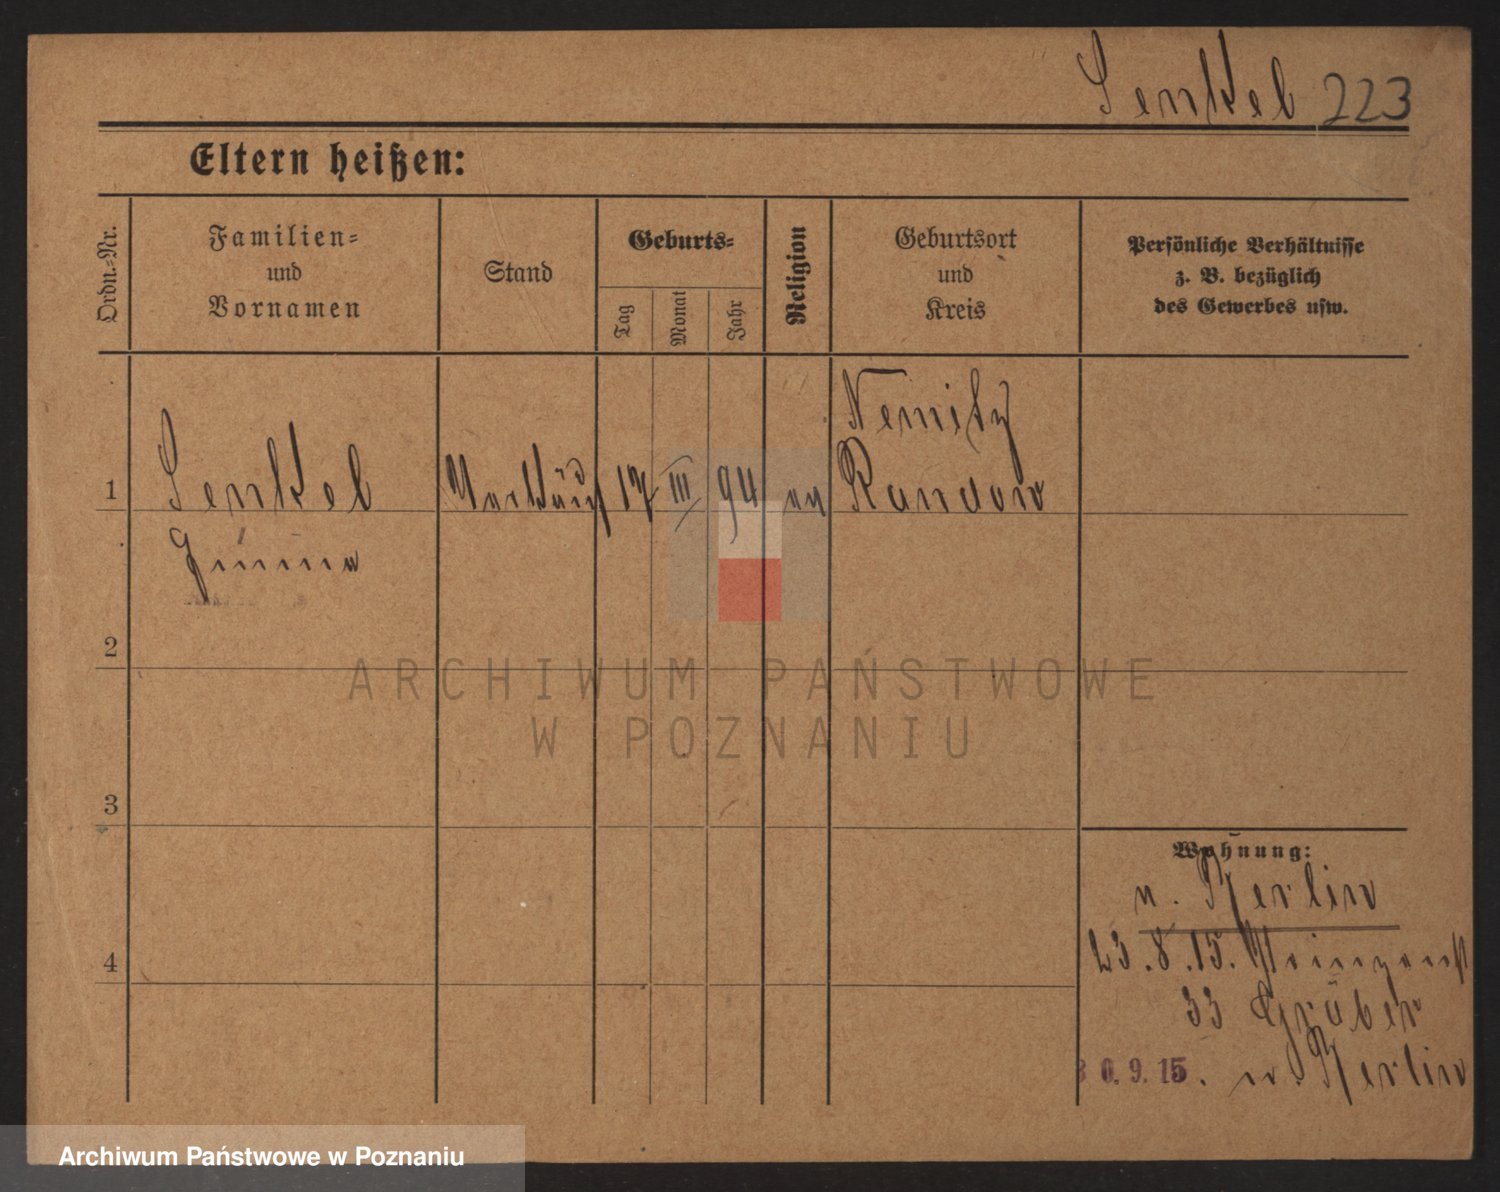 Senkel 223
Eltern heißen:
Ordn.-Nr.
Familien-
und
Vornamen
Stand
Geburts-
Tag
Monat
Jahr
Religion
Geburtsort
und
Kreis
Persönliche Verhältnisse
z. B. bezüglich
des Gewerbes usw.
Nemitz
1 Senkel 17 III 94 ev Randow
2
3
4
Wohnung:
n. Berlin
23.8.15.
33 Gräber
30.9.15. n. Berlin
ARCHIWUM PAŃSTWOWE
W POZNANIU
Archiwum Państwowe w Poznaniu